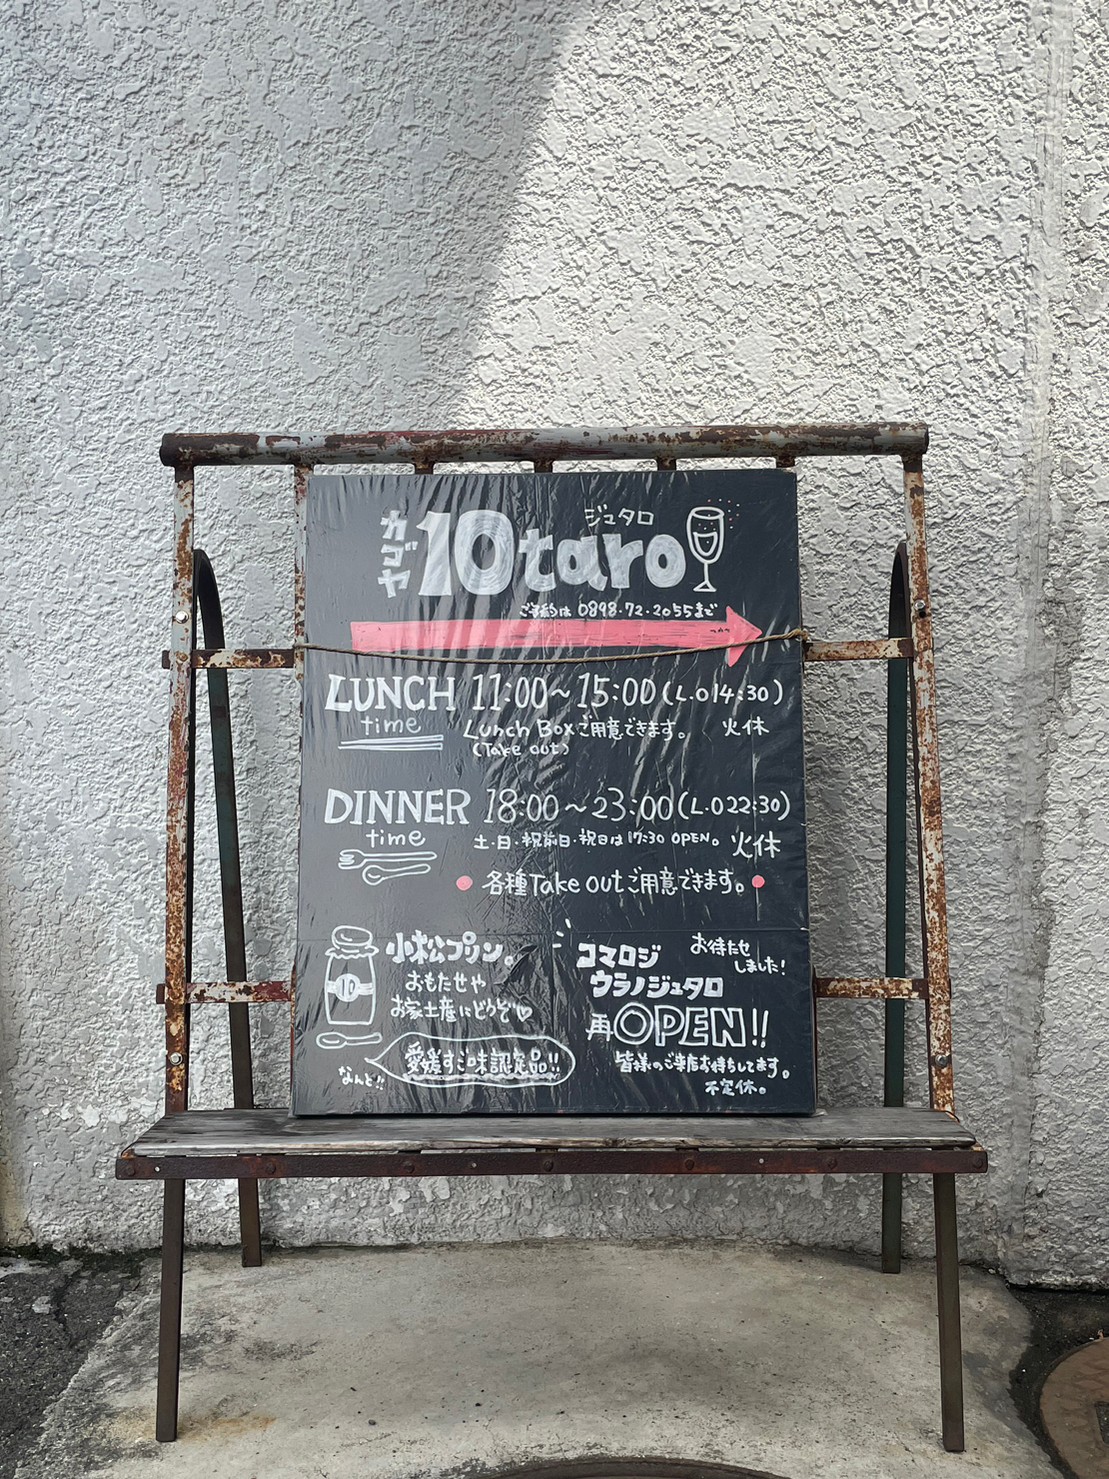 カゴヤ
ジュタロ
10taro
ご予約は 0898・72・2055まで
LUNCH 11:00〜15:00(L.O14:30)
time
Lunch Boxご用意できます。
火休
(Take out)
DINNER 18:00〜23:00(L.O22:30)
time
土・日・祝前日・祝日は17:30 OPEN。
火休
各種Take outご用意できます。
10
小松プリン。
おもたせや
お家土産にどうぞ♡
なんと!!
愛媛すご味認定品!!
コマロジ
ウラノジュタロ
お待たせ
しました!
再OPEN!!
皆様のご来店お待ちしてます。
不定休。